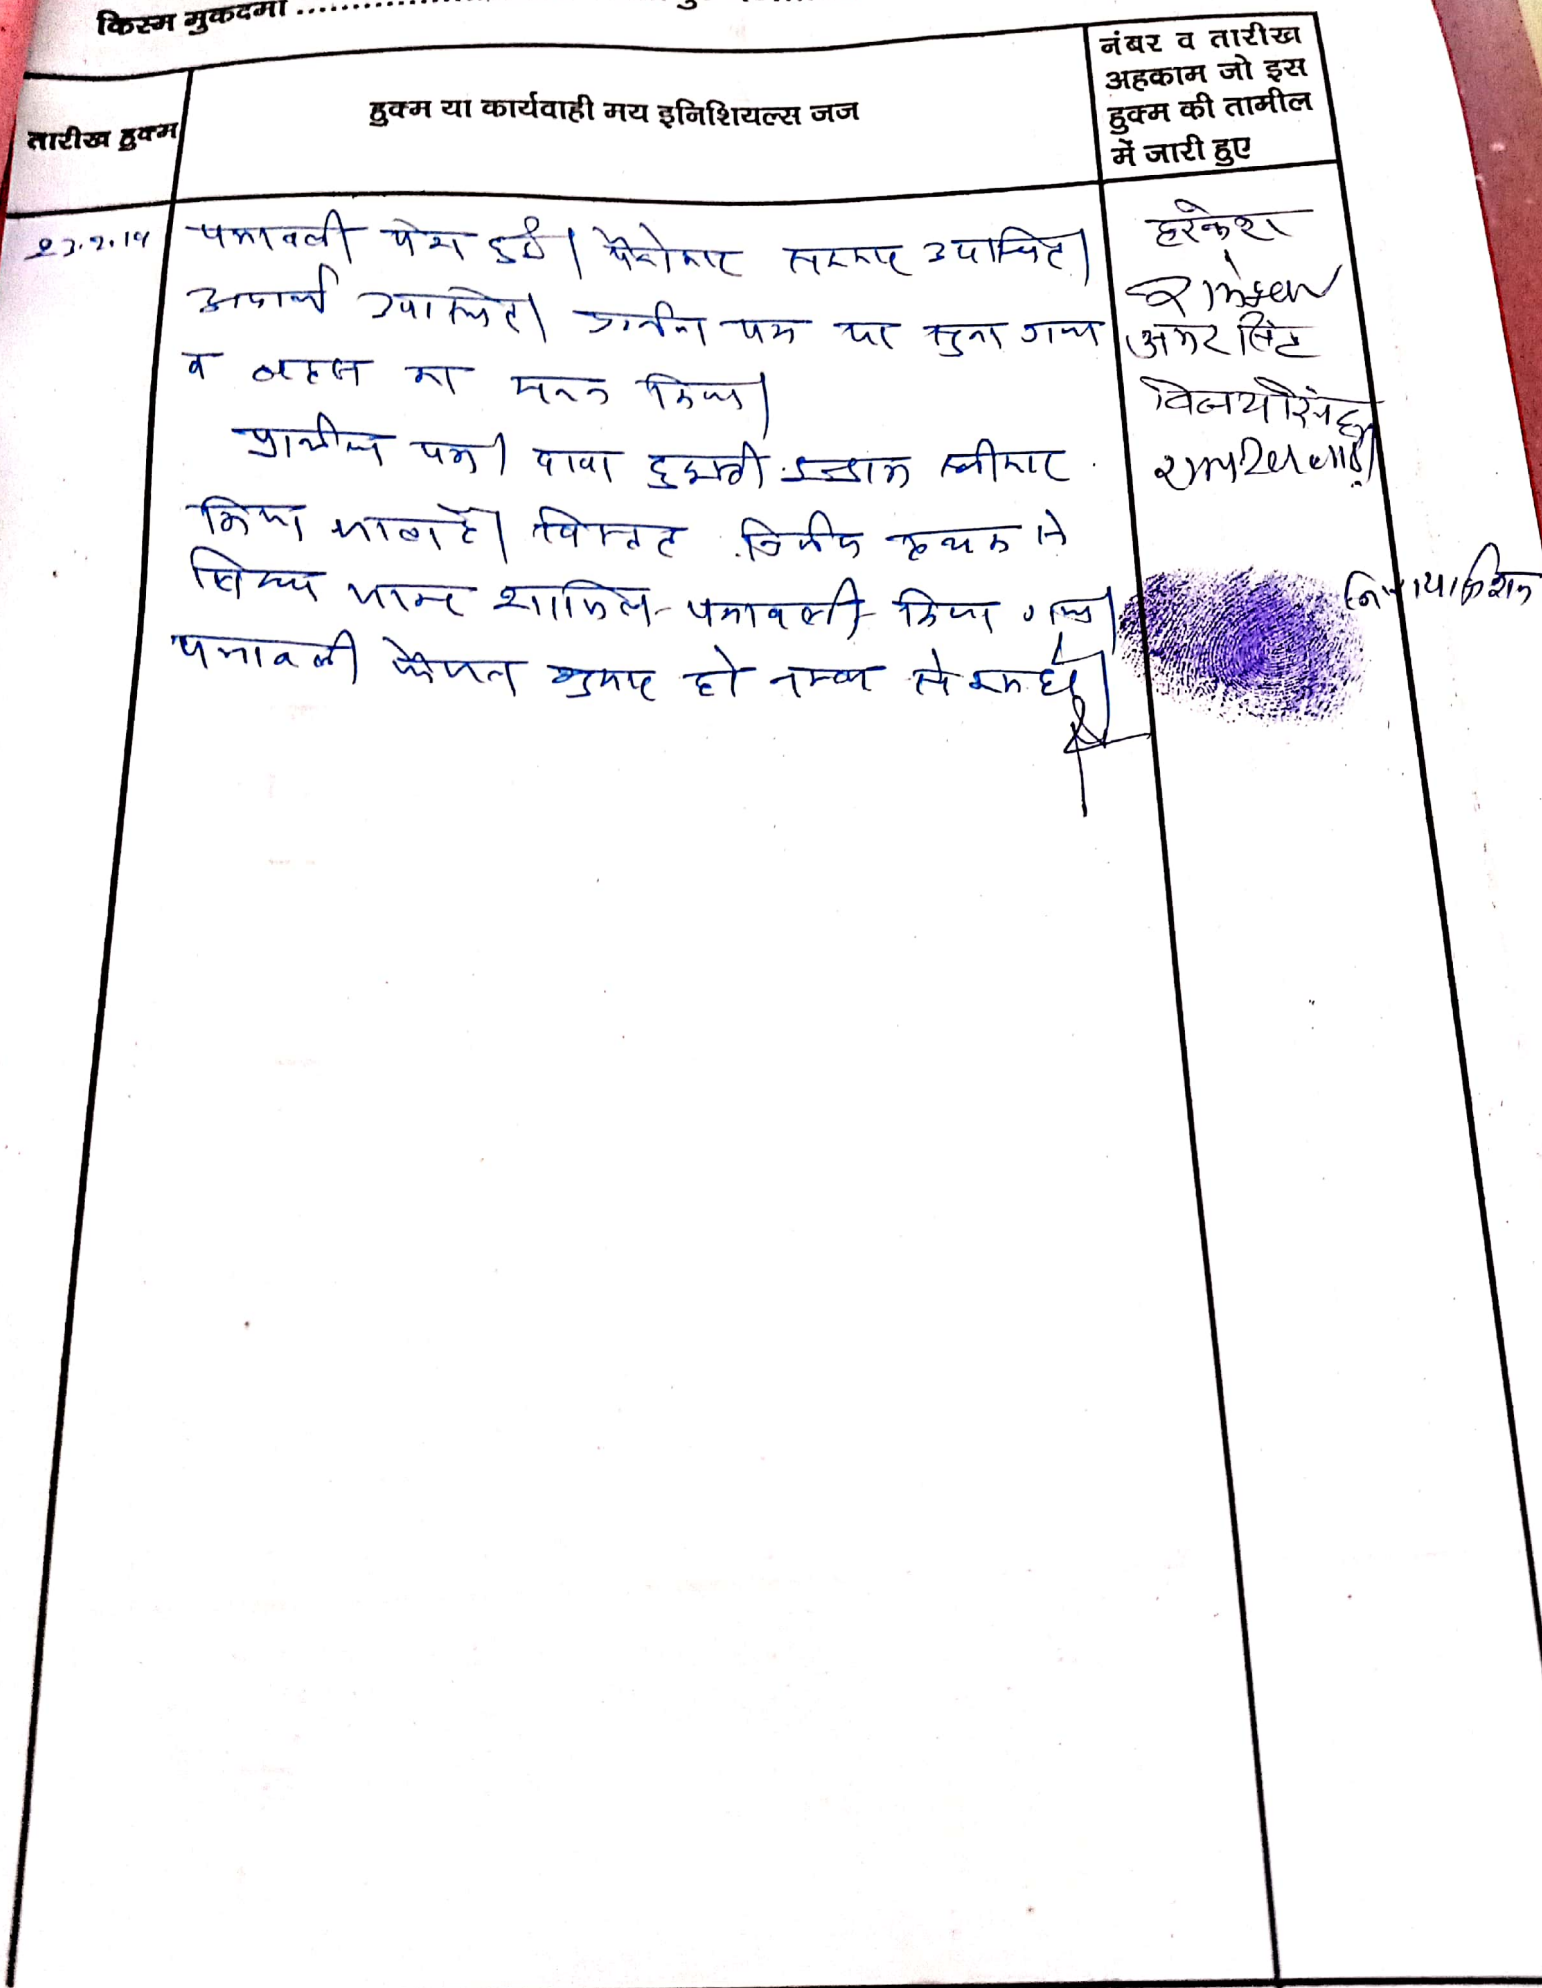 किस्म मुकदमा ..................
तारीख हुक्म
हुक्म या कार्यवाही मय इनिशियल्स जज
नंबर व तारीख
अहकाम जो इस
हुक्म की तामील
में जारी हुए
पत्रावली पेश हुई। पैरोकार सरकार उपस्थित।
उपस्थित। प्रार्थना पत्र पर सुना गया
व बहस का मनन किया।
प्रार्थना पत्र। दावा दुरुस्ती स्वीकार
किया जाता है। विस्तृत निर्णय पृथक से
लिखा जाकर शामिल पत्रावली किया गया।
पत्रावली फैसल शुमार हो नम्बर से कम हो।
हरकेश
अमर सिंह
विजय सिंह